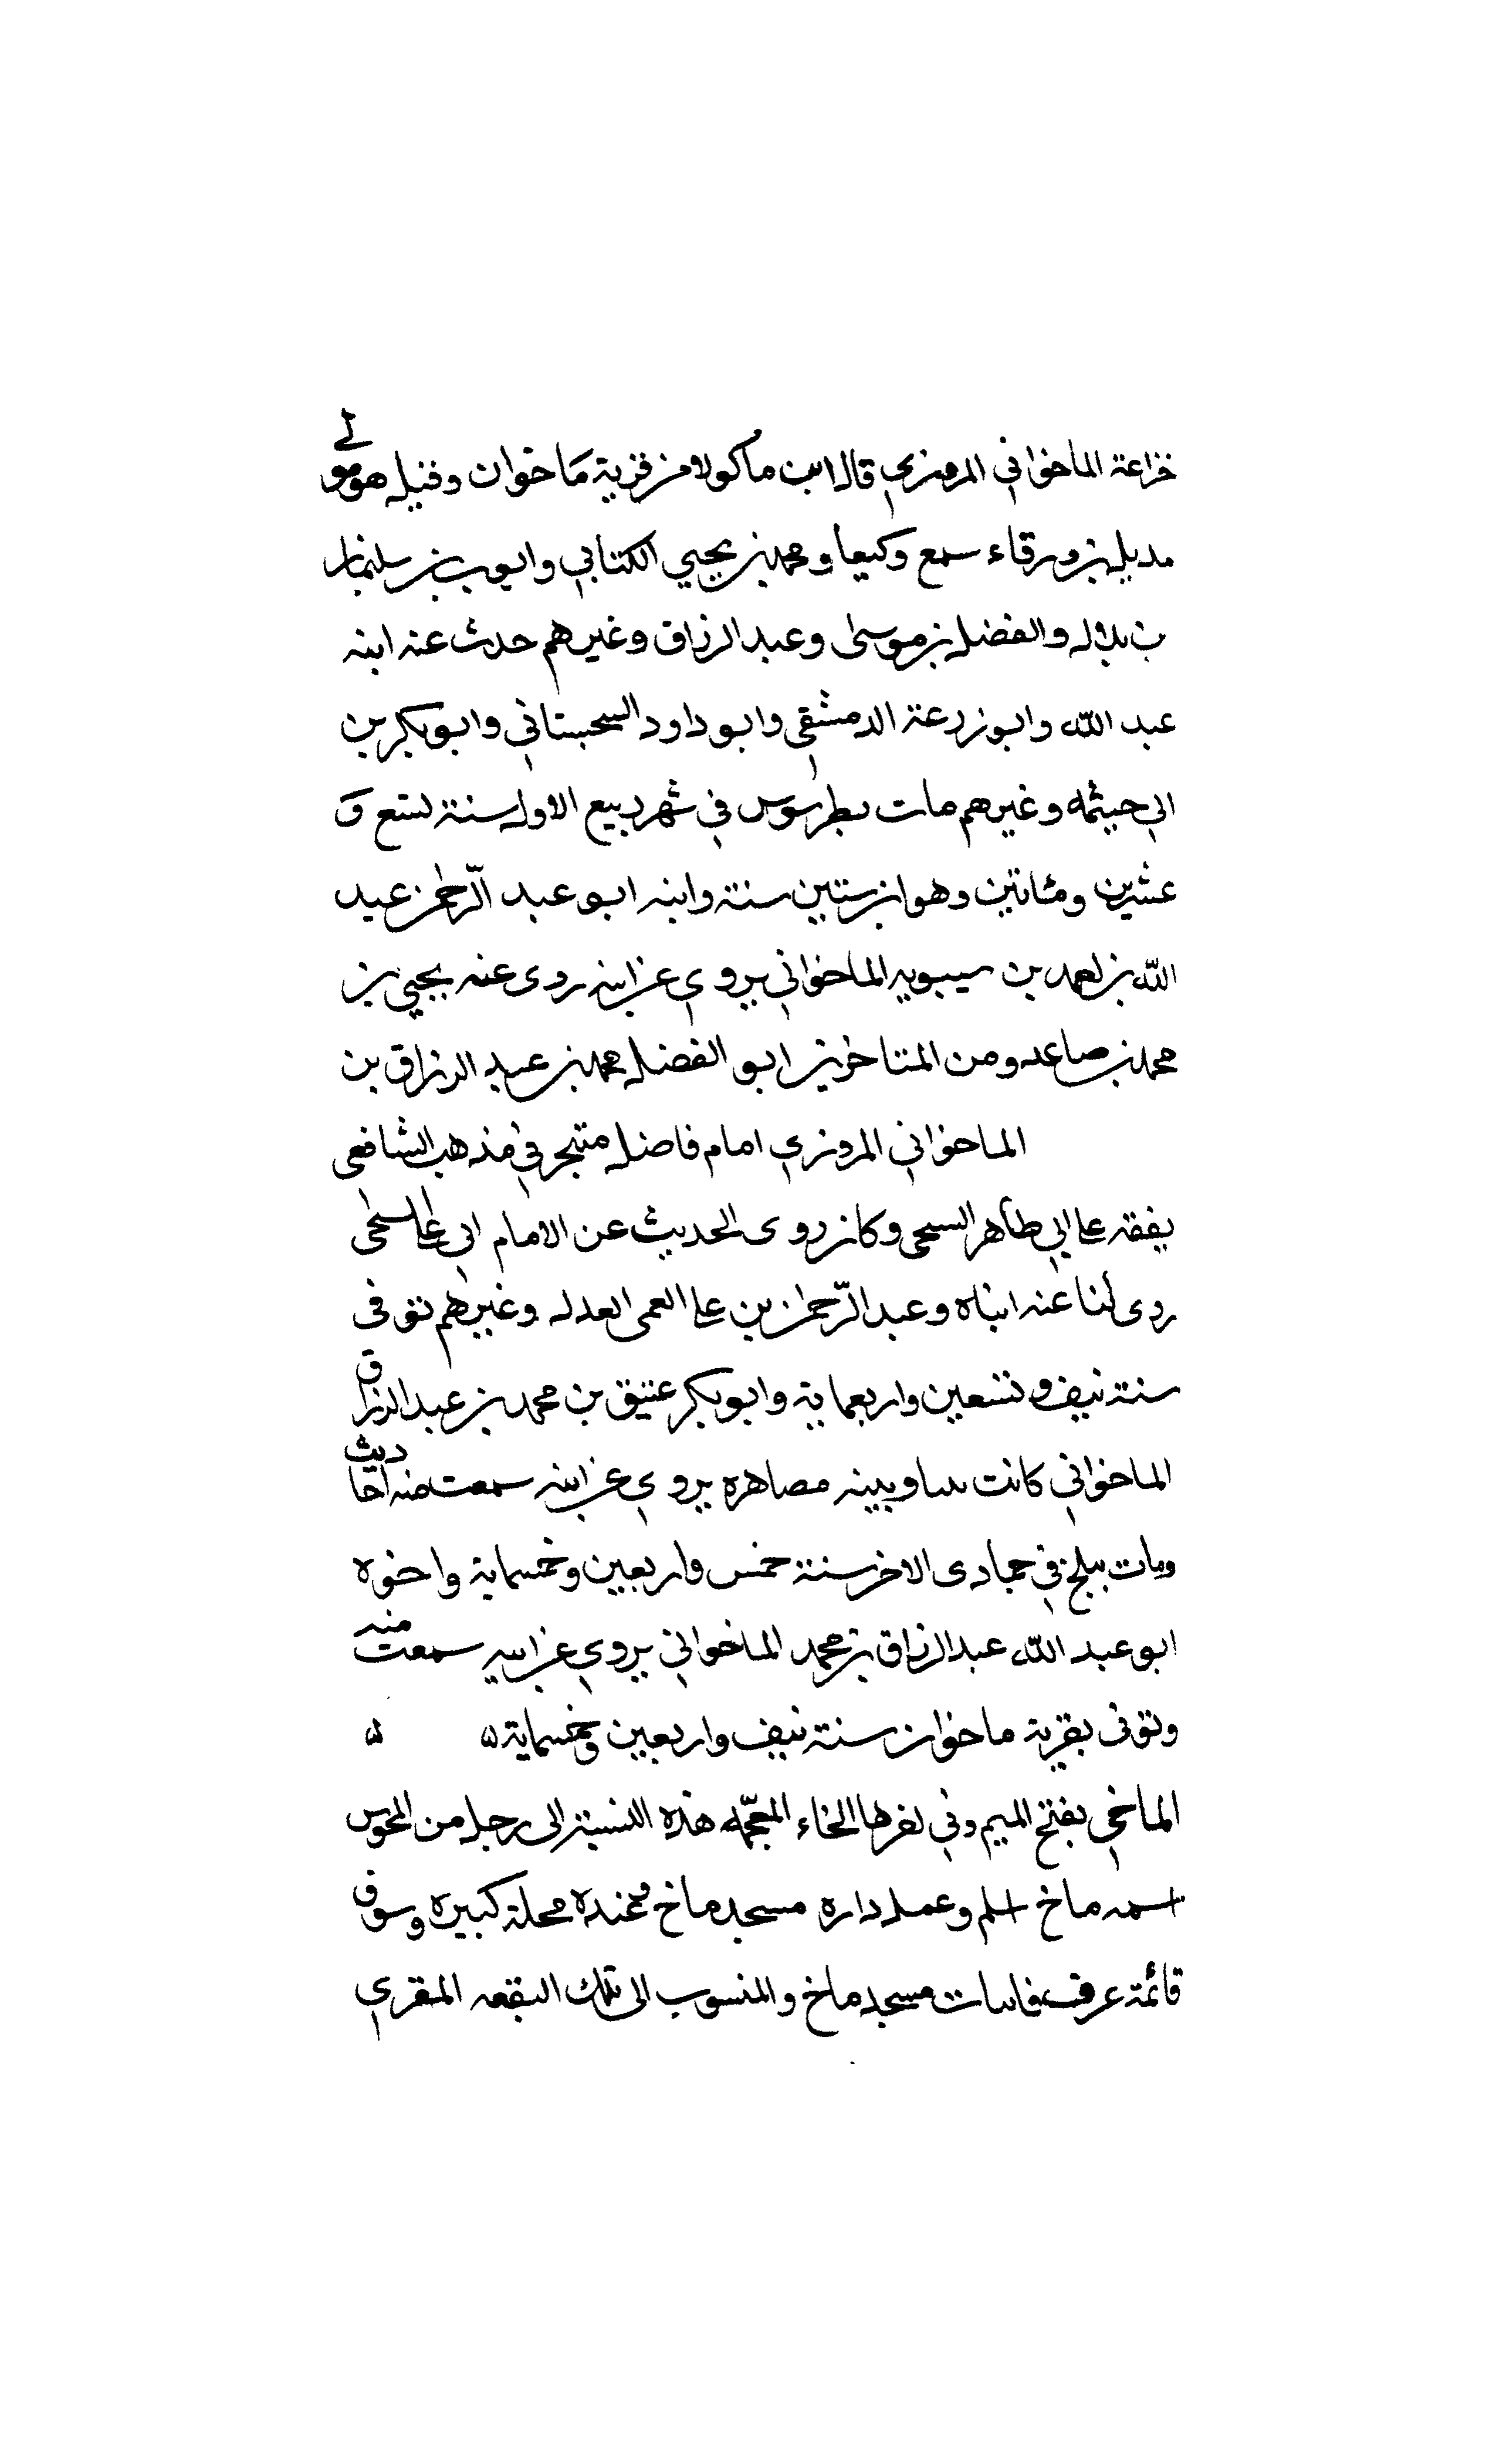 خزاعة الماخواني المروزي قال ابن ماكولا من قرية ماخوان وقيل هو مولى
بديل بن ورقاء سمع وكيعا ومحمد بن يحيي الكتابي وايوب بن سليمان
بن بلال والفضل بن موسى وعبد الرزاق وغيرهم حدث عنه ابنه
عبد الله وابو زرعة الدمشقي وابو داود السجستاني وابو بكر بن
ابي خيثمه وغيرهم مات بطرسوس في شهر ربيع الاول سنة تسع و
عشرين ومئاتين وهو ابن ستين سنة وابنه ابو عبد الرحمن عبد
الله بن احمد بن سيبويه الماخواني يروي عن ابيه روى عنه يحيي بن
محمد بن صاعد ومن المتاخرين ابو الفضل محمد بن عبد الرزاق بن
الماخواني المروزي امام فاضل متبحر في مذهب الشافعي
يفقه على ابي طاهر السبحي وكان روى الحديث عن الامام ابي على السبحي
روى لنا عنه ابناه وعبد الرحمان بن على العمى العدل وغيرهم توفى
سنة نيف وتسعين واربعماية وابو بكر عتيق بن محمد بن عبد الرزاق
الماخواني كانت بيننا وبينه مصاهره يروي عن ابيه سمعت منه احاديث
ومات ببلخ في جمادى الاخر سنة خمس واربعين وخمسماية واخوه
ابو عبد الله عبد الرزاق بن محمد الماخواني يروي عن ابيه سمعت منه
وتوفى بقرية ماخوان سنة نيف واربعين وخمسماية ه ه
الماخي بفتح الميم وفي اخرها الخاء المعجمه هذه النسبة الى رجل من المجوس
اسمه ماخ اسلم وعمل داره مسجد ماخ وعنده محلة كبيره وسوق
قائمة عرفت مسجد ماخ والمنسوب الى تلك البقعه المقري